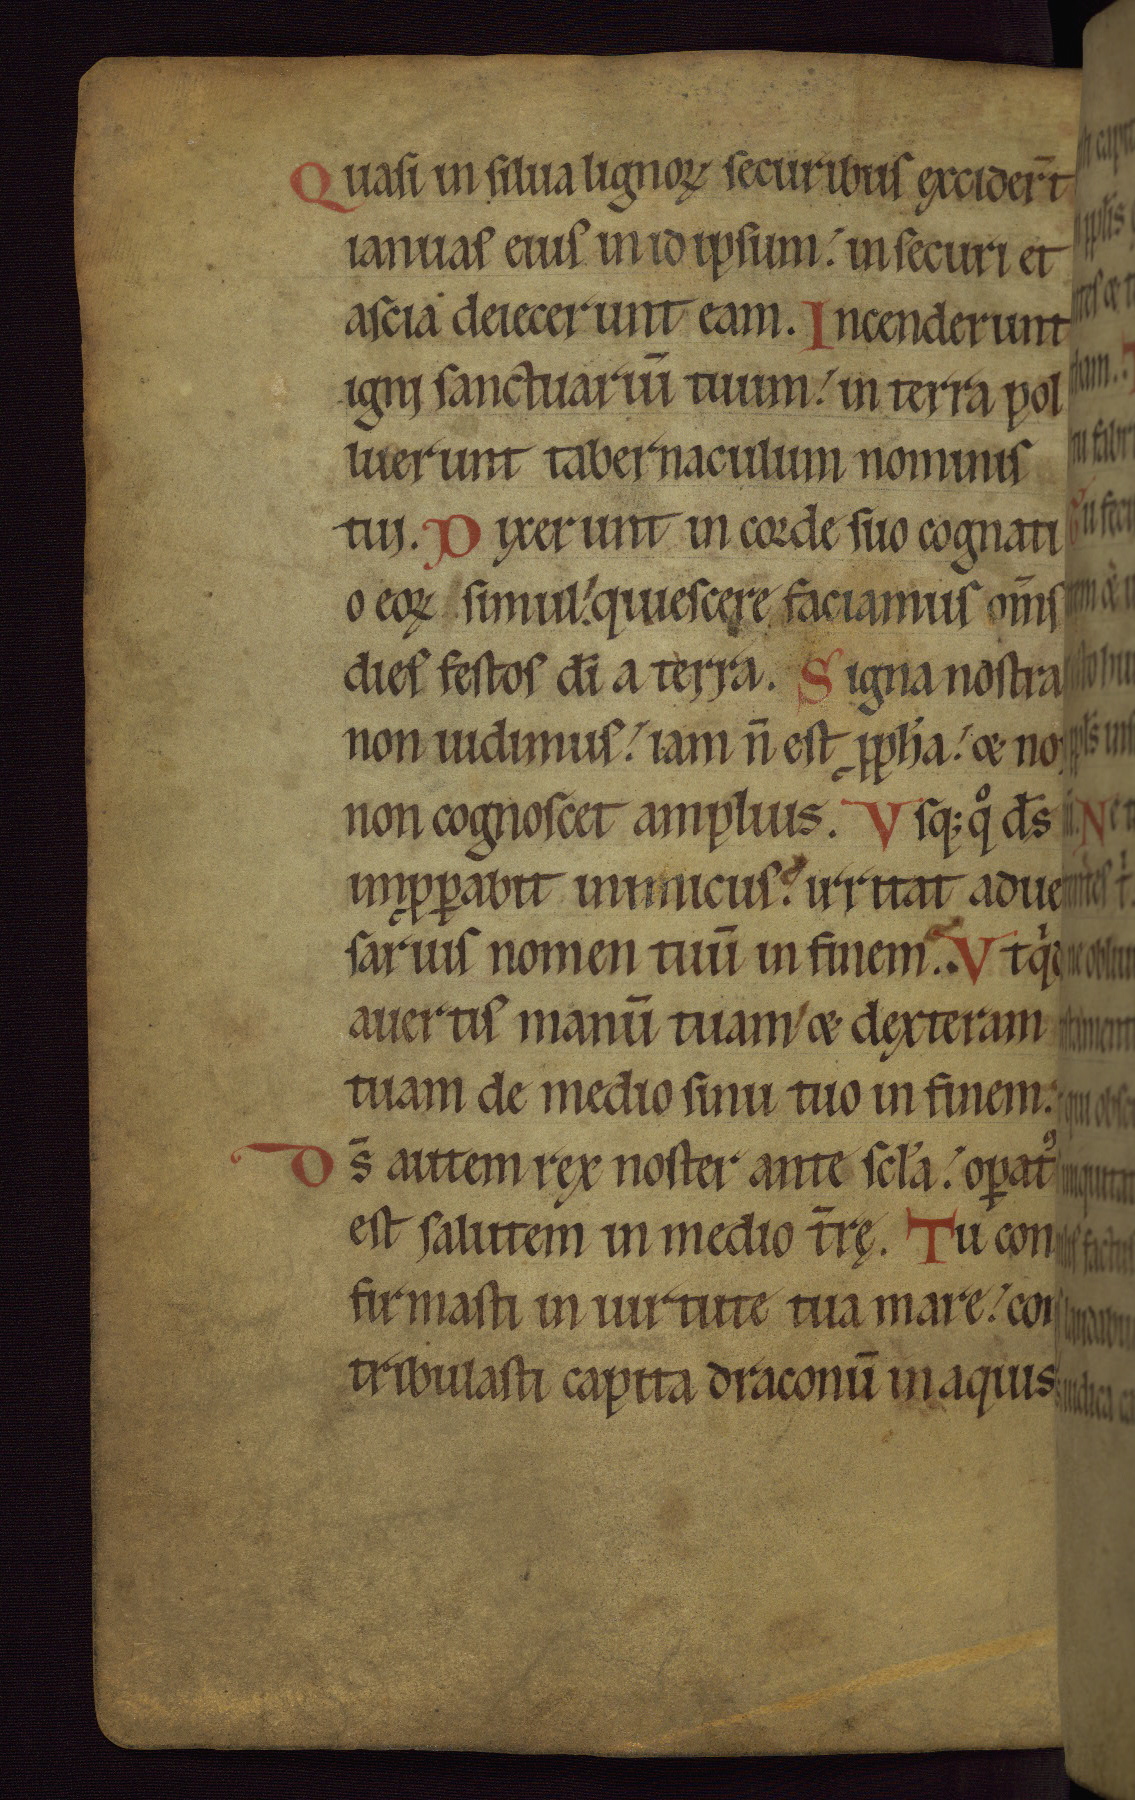 Quasi in silua lignoꝝ securibus excider̄t
ianuas eius in id ipsum: in securi et
ascia deiecerunt eam. Incenderunt
igni sanctuariū tuum: in terra pol
luerunt tabernaculum nominis
tui. Dixerunt in corde suo cognati
o eoꝝ simul: quiescere faciamus om̄s
dies festos dī a terra. Signa nostra
non uidimus: iam n̄ est ꝓpħa: & no
non cognoscet amplius. Vsq; qͦ ds̄
imꝓꝑabit inimicus: irritat adue
sarius nomen tuū in finem. Vtqͥd
auertis manū tuam & dexteram
tuam de medio sinu tuo in finem.
Ds̄ autem rex noster ante scl̄a: oꝑatͦ
est salutem in medio t̄rę. Tu con
firmasti in uirtute tua mare: con
tribulasti capita draconū in aquis